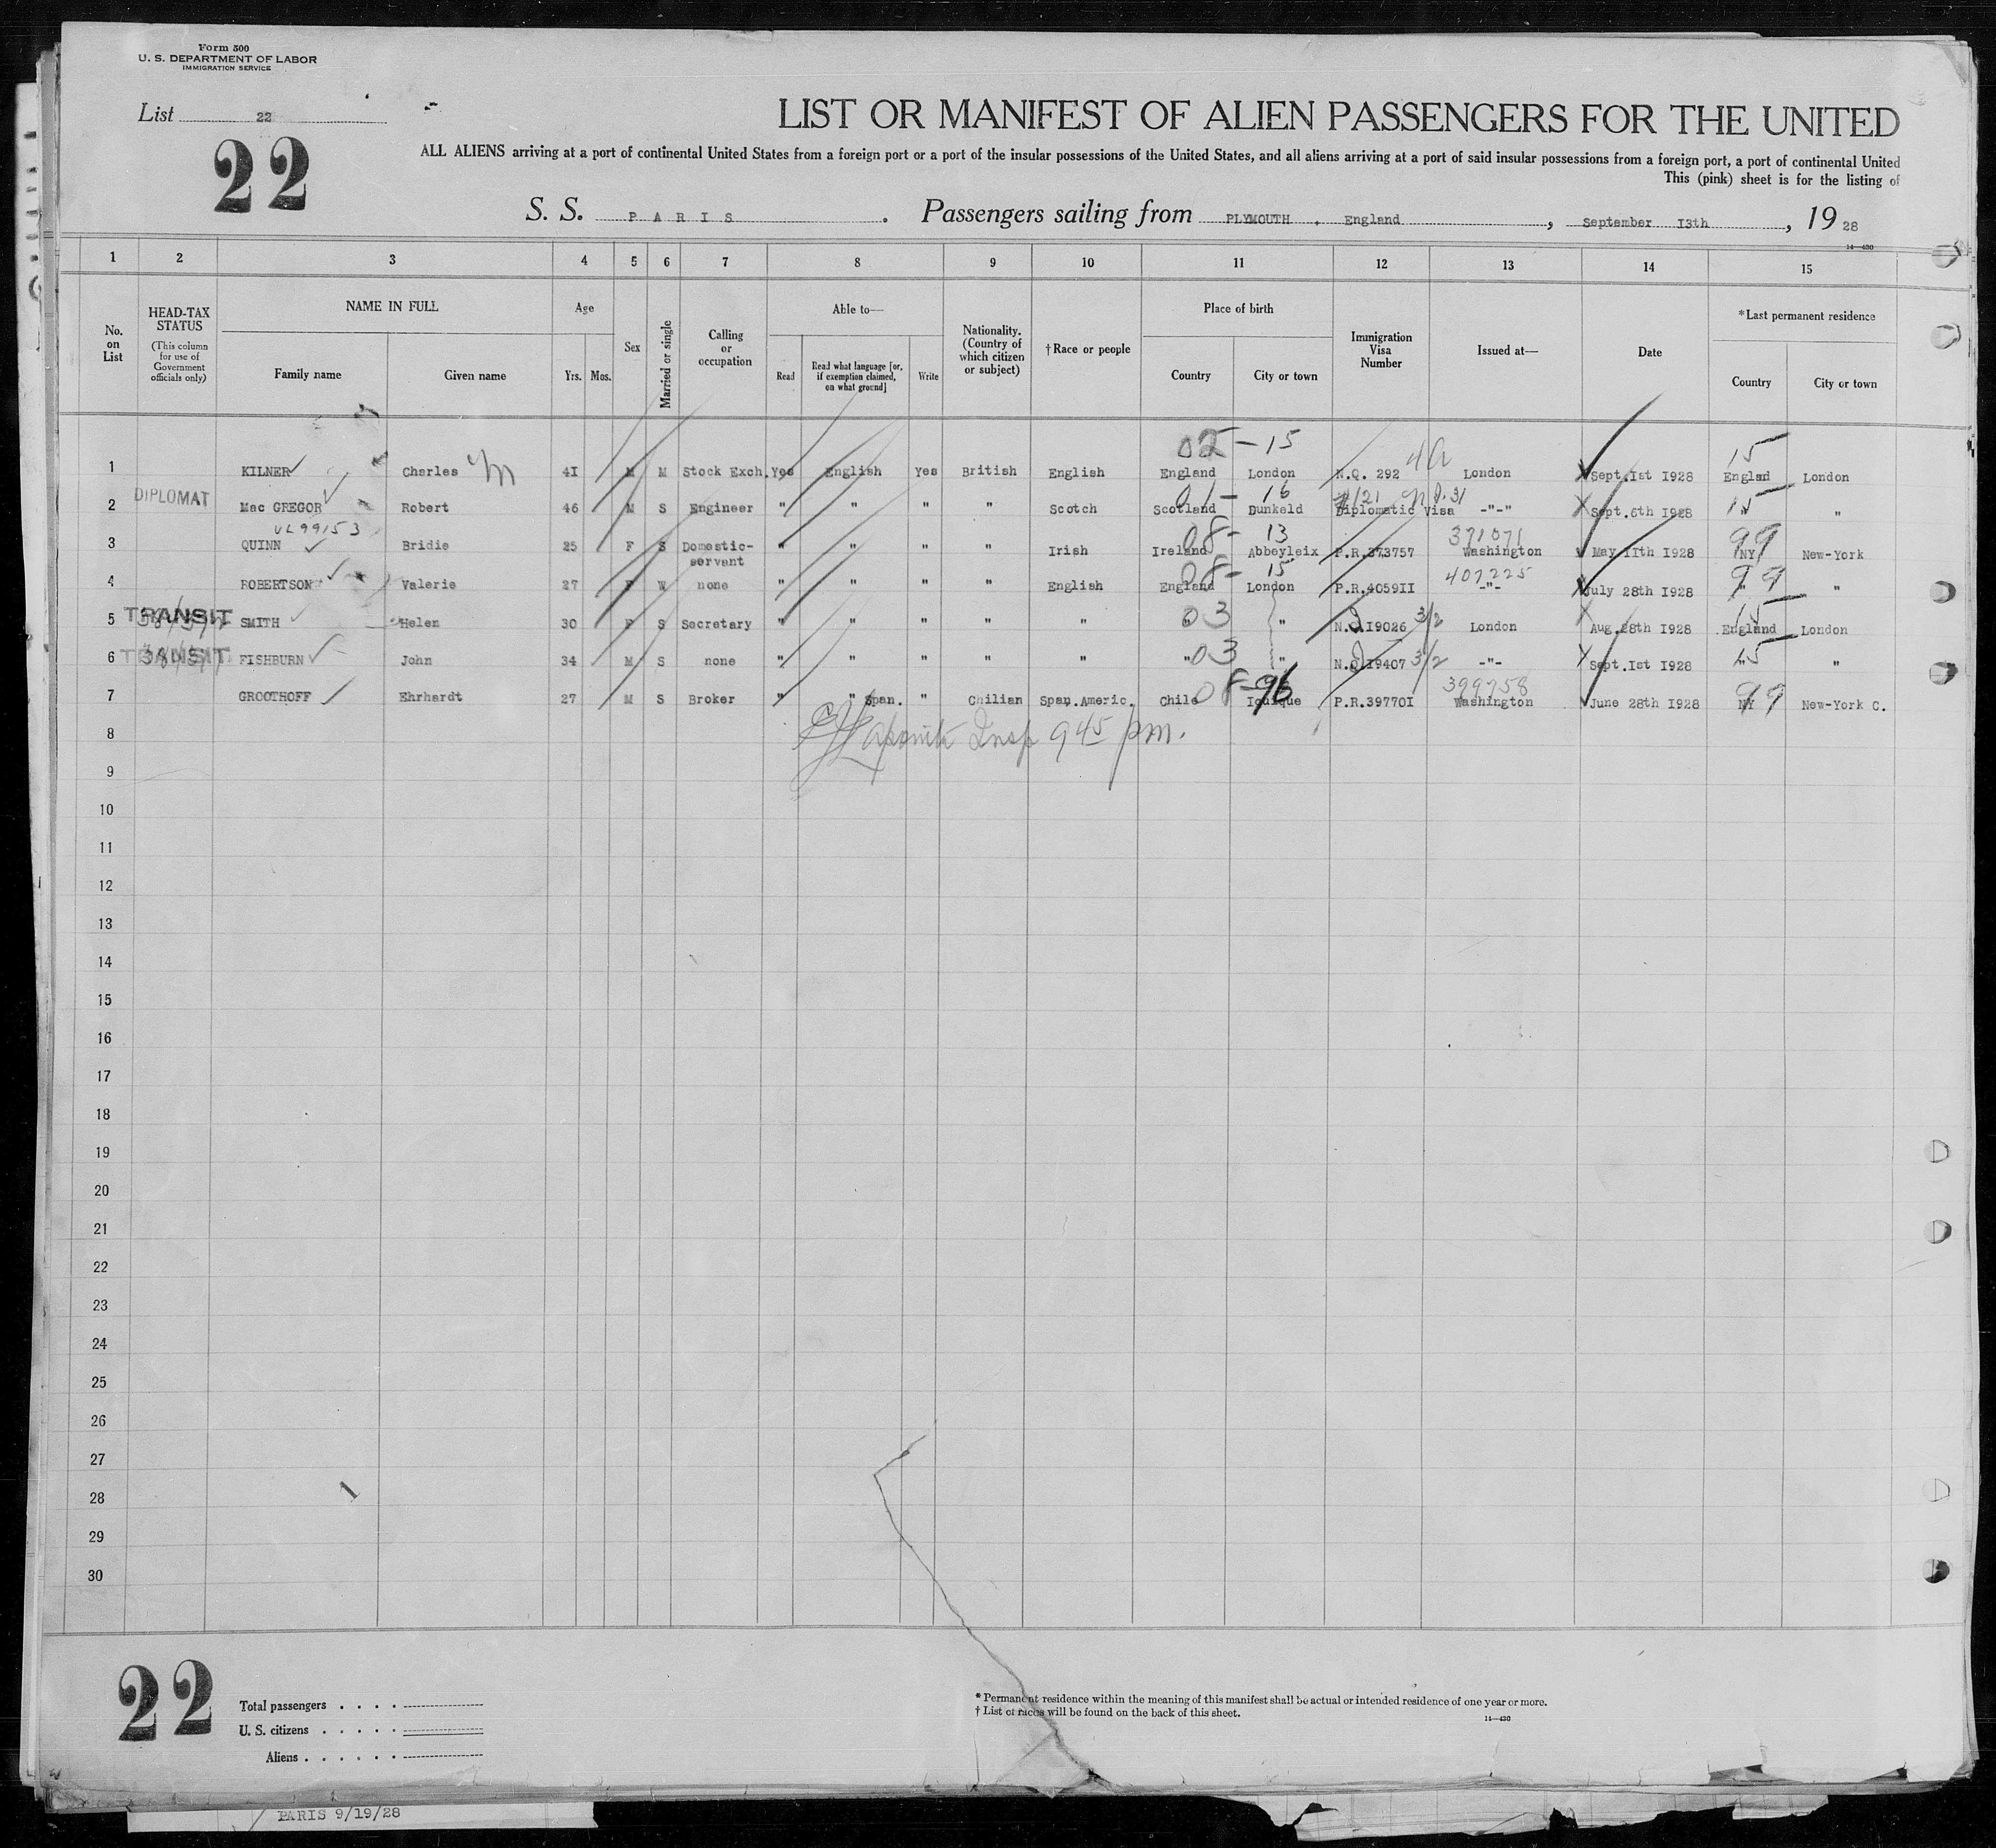 Form 500
U. S. DEPARTMENT OF LABOR
IMMIGRATION SERVICE
List 22
22
LIST OR MANIFEST OF ALIEN PASSENGERS FOR THE UNITED
ALL ALIENS arriving at a port of continental United States from a foreign port or a port of the insular possessions of the United States, and all aliens arriving at a port of said insular possessions from a foreign port, a port of continental United
This (pink) sheet is for the listing of
S. S. PARIS . Passengers sailing from PLYMOUTH . England , September I3th , 19 28
14—430
1 2 3 4 5 6 7 8 9 10 11 12 13 14 15
No. on List
HEAD-TAX STATUS
(This column for use of Government officials only)
NAME IN FULL
Family name Given name
Age
Yrs. Mos.
Sex
Married or single
Calling or occupation
Able to—
Read Read what language [or, if exemption claimed, on what ground] Write
Nationality. (Country of which citizen or subject)
†Race or people
Place of birth
Country City or town
Immigration Visa Number
Issued at—
Date
*Last permanent residence
Country City or town
02 - 15 4a 15
1 KILNER Charles 4I M M Stock Exch. Yes English Yes British English England London N.Q. 292 London Sept.Ist I928 Englad London
DIPLOMAT 01 - 16 15
2 Mac GREGOR Robert 46 M S Engineer " " " " Scotch Scotland Dunkeld Diplomatic Visa -"-" Sept.6th I928 " "
VL99153 08 - 13 371071 99
3 QUINN Bridie 25 F S Domestic-servant " " " " Irish Ireland Abbeyleix P.R.373757 Washington May IIth I928 NY New-York
08 - 15 407225 99
4 ROBERTSON Valerie 27 F W none " " " " English England London P.R.4059II -"- July 28th I928 " "
TRANSIT 03 3/2 15
5 SMITH Helen 30 F S Secretary " " " " " " " N.Q.I9026 London Aug.28th I928 England London
TRANSIT 03 3/2 15
6 FISHBURN John 34 M S none " " " " " " " N.Q.I9407 -"- Sept.Ist I928 " "
08-96 399758 99
7 GROOTHOFF Ehrhardt 27 M S Broker " " Span. " Chilian Span.Americ. Chile Iquique P.R.39770I Washington June 28th I928 NY New-York C.
8 Insp 9 45 pm.
9
10
11
12
13
14
15
16
17
18
19
20
21
22
23
24
25
26
27
28
29
30
22
Total passengers . . . .
U. S. citizens . . . . .
Aliens . . . . . .
* Permanent residence within the meaning of this manifest shall be actual or intended residence of one year or more.
† List of races will be found on the back of this sheet.
14—430
PARIS 9/19/28